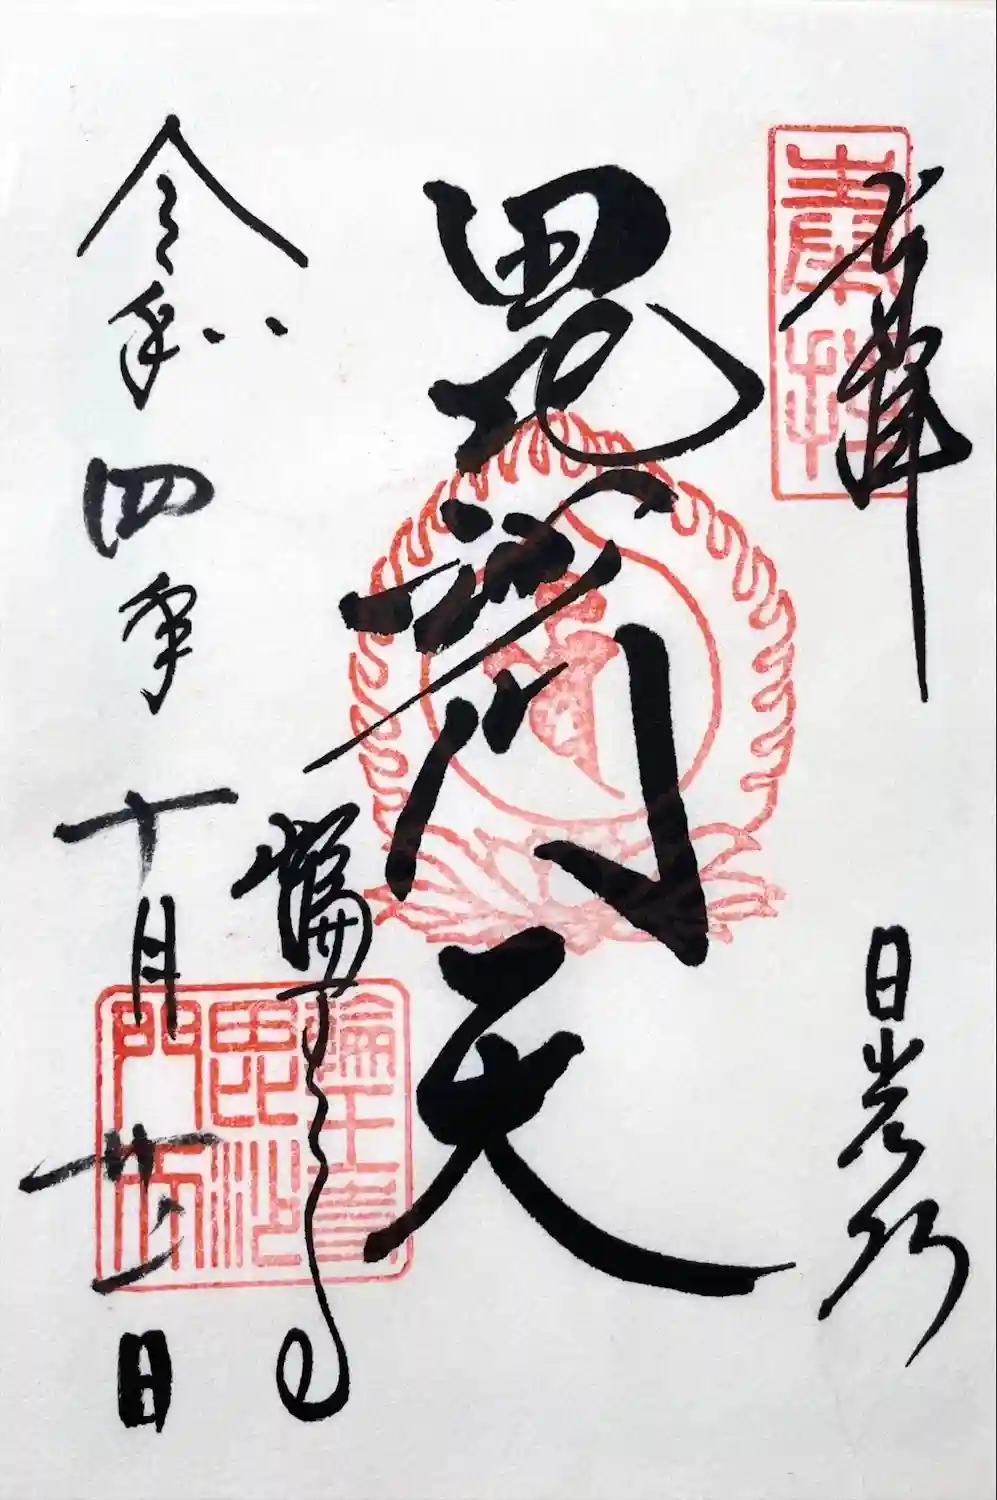 奉拝
日光山
毘沙門天
輪王寺
令和四年十月廿二日
輪王寺
毘沙
門天